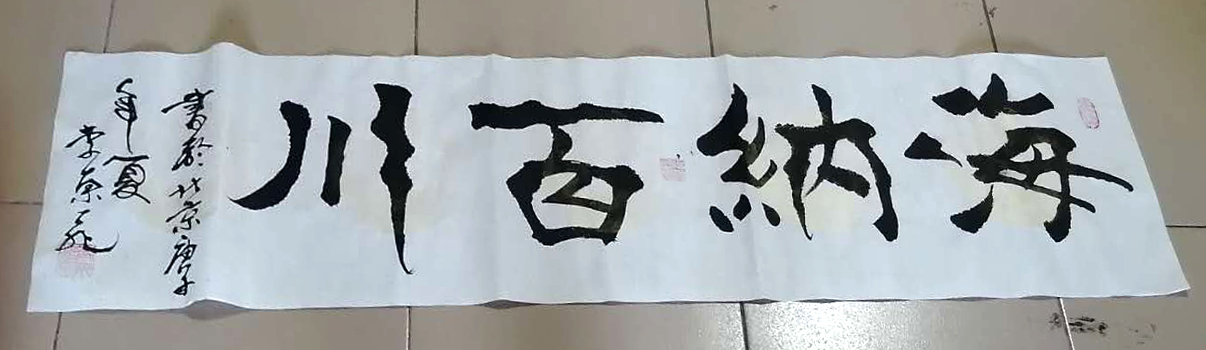 海納百川
書於北京庚子
年夏
李榮飛